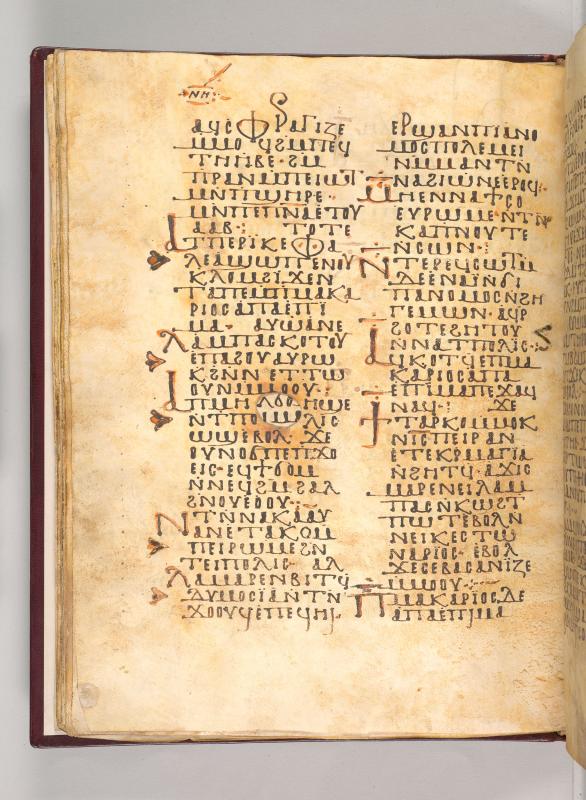 ⲛⲏ
ⲁϥⲥⲫⲣⲁⲅⲓⲍⲉ
ⲙⲙⲟϥ ϩⲙⲡⲉϥ
ⲧⲏⲏⲃⲉ· ϩⲙ
ⲡⲣⲁⲛ ⲙⲡⲉⲓⲱⲧ
ⲙⲛⲡϣⲏⲣⲉ·
ⲙⲛⲡⲉⲡⲛⲁ ⲉⲧⲟⲩ
ⲁⲁⲃ· ⲧⲟⲧⲉ
ⲁⲧⲡⲉⲣⲓⲕⲉⲫⲁ
ⲗⲉⲁ ϣⲱⲡⲉ ⲛⲟⲩ
ⲕⲗⲟⲙ ϩⲓϫⲉⲛ
ⲧⲁⲡⲉ ⲙⲡⲙⲁⲕⲁ
ⲣⲓⲟⲥ ⲁⲡⲁ ⲉⲡⲓ
ⲙⲁ· ⲁⲩⲱ ⲁⲛⲉ
ⲗⲁⲙⲡⲁⲥ ⲕⲟⲧⲟⲩ
ⲉⲡⲁϩⲟⲩ ⲁⲩⲣⲱ
ⲕϩ ⲛⲛⲉⲧⲧϣ
ⲟⲩⲛ ⲙⲙⲟⲟⲩ·
ⲁⲡⲙⲏ ⲏϣⲉ
ⲛⲧⲡⲟⲗⲓⲥ
ⲱϣ ⲉⲃⲟⲗ· ϫⲉ
ⲟⲩⲛⲟϭ ⲡⲉ ⲡϫⲟ
ⲉⲓⲥ· ⲉϥϯϭⲟⲙ
ⲛⲛⲉϥϩⲙϩⲁⲗ
ϩⲛⲟⲩⲉⲟⲟⲩ·
ⲛⲧⲛⲛⲁⲕⲁⲁⲩ
ⲁⲛ ⲉⲧⲁⲕⲟⲙ
ⲡⲉⲓⲣⲱⲙⲉ ϩⲛ
ⲧⲉⲓⲡⲟⲗⲓⲥ· ⲁⲗ
ⲗⲁ ⲙⲁⲣⲉⲛⲃⲓⲧϥ
ⲇⲩⲙⲟⲥⲓⲁ ⲛⲧⲛ
ϫⲟⲟⲩϥ ⲉⲡⲉϥⲏⲓ·
ⲉⲣϣⲁⲛⲡⲓⲁⲛⲟ
ⲙⲟⲥ ⲡⲟⲗⲉⲙⲉⲓ
ⲛⲙⲙⲁⲛ ⲧⲛ
ⲛⲁϩⲓⲱⲛⲉ ⲉⲣⲟϥ·
ⲙⲉⲛⲛⲁϯⲥⲟ
ⲉⲩⲣⲱⲙⲉ ⲛⲧⲛ
ⲕⲁⲡⲛⲟⲩⲧⲉ
ⲛⲥⲱⲛ·
ⲛⲧⲉⲣⲉϥⲥⲱⲧⲙ
ⲇⲉ ⲉⲛⲁⲓ ⲛϭⲓ
ⲡⲁⲛⲟⲙⲟⲥ ⲛϩⲏ
ⲅⲉⲙⲱⲛ· ⲁϥⲣ
ϩⲟⲧⲉ ϩⲏⲧⲟⲩ
ⲛⲛⲁⲧⲡⲟⲗⲓⲥ·
ⲁϥⲕⲟⲧϥ ⲉⲡⲙⲁ
ⲕⲁⲣⲓⲟⲥ ⲁⲡⲁ
ⲉⲡⲓⲙⲁ ⲡⲉϫⲁϥ
ⲛⲁϥ· ϫⲉ
ϯⲧⲁⲣⲕⲟ ⲙⲙⲟⲕ
ⲛⲓⲥⲡⲉⲓⲣⲁⲛ
ⲉⲧⲉⲕⲙⲁⲅⲓⲁ
ⲛϩⲏⲧϥ· ϫⲓⲥ
ⲙⲁⲣⲉⲛⲉⲓⲗⲁⲙ
ⲡⲁⲥ ⲛⲕⲱϩⲧ
ⲡⲱⲧ ⲉⲃⲟⲗ ⲛ
ⲛⲉⲓⲕⲉⲥⲧⲱ
ⲛⲁⲣⲓⲟⲥ· ⲉⲃⲟⲗ
ϫⲉ ⲥⲉⲃⲁⲥⲁⲛⲓⲍⲉ
ⲙⲙⲟⲟⲩ·
ⲡⲙⲁⲕⲁⲣⲓⲟⲥ ⲇⲉ
ⲁⲡⲁ ⲉⲡⲓⲙⲁ